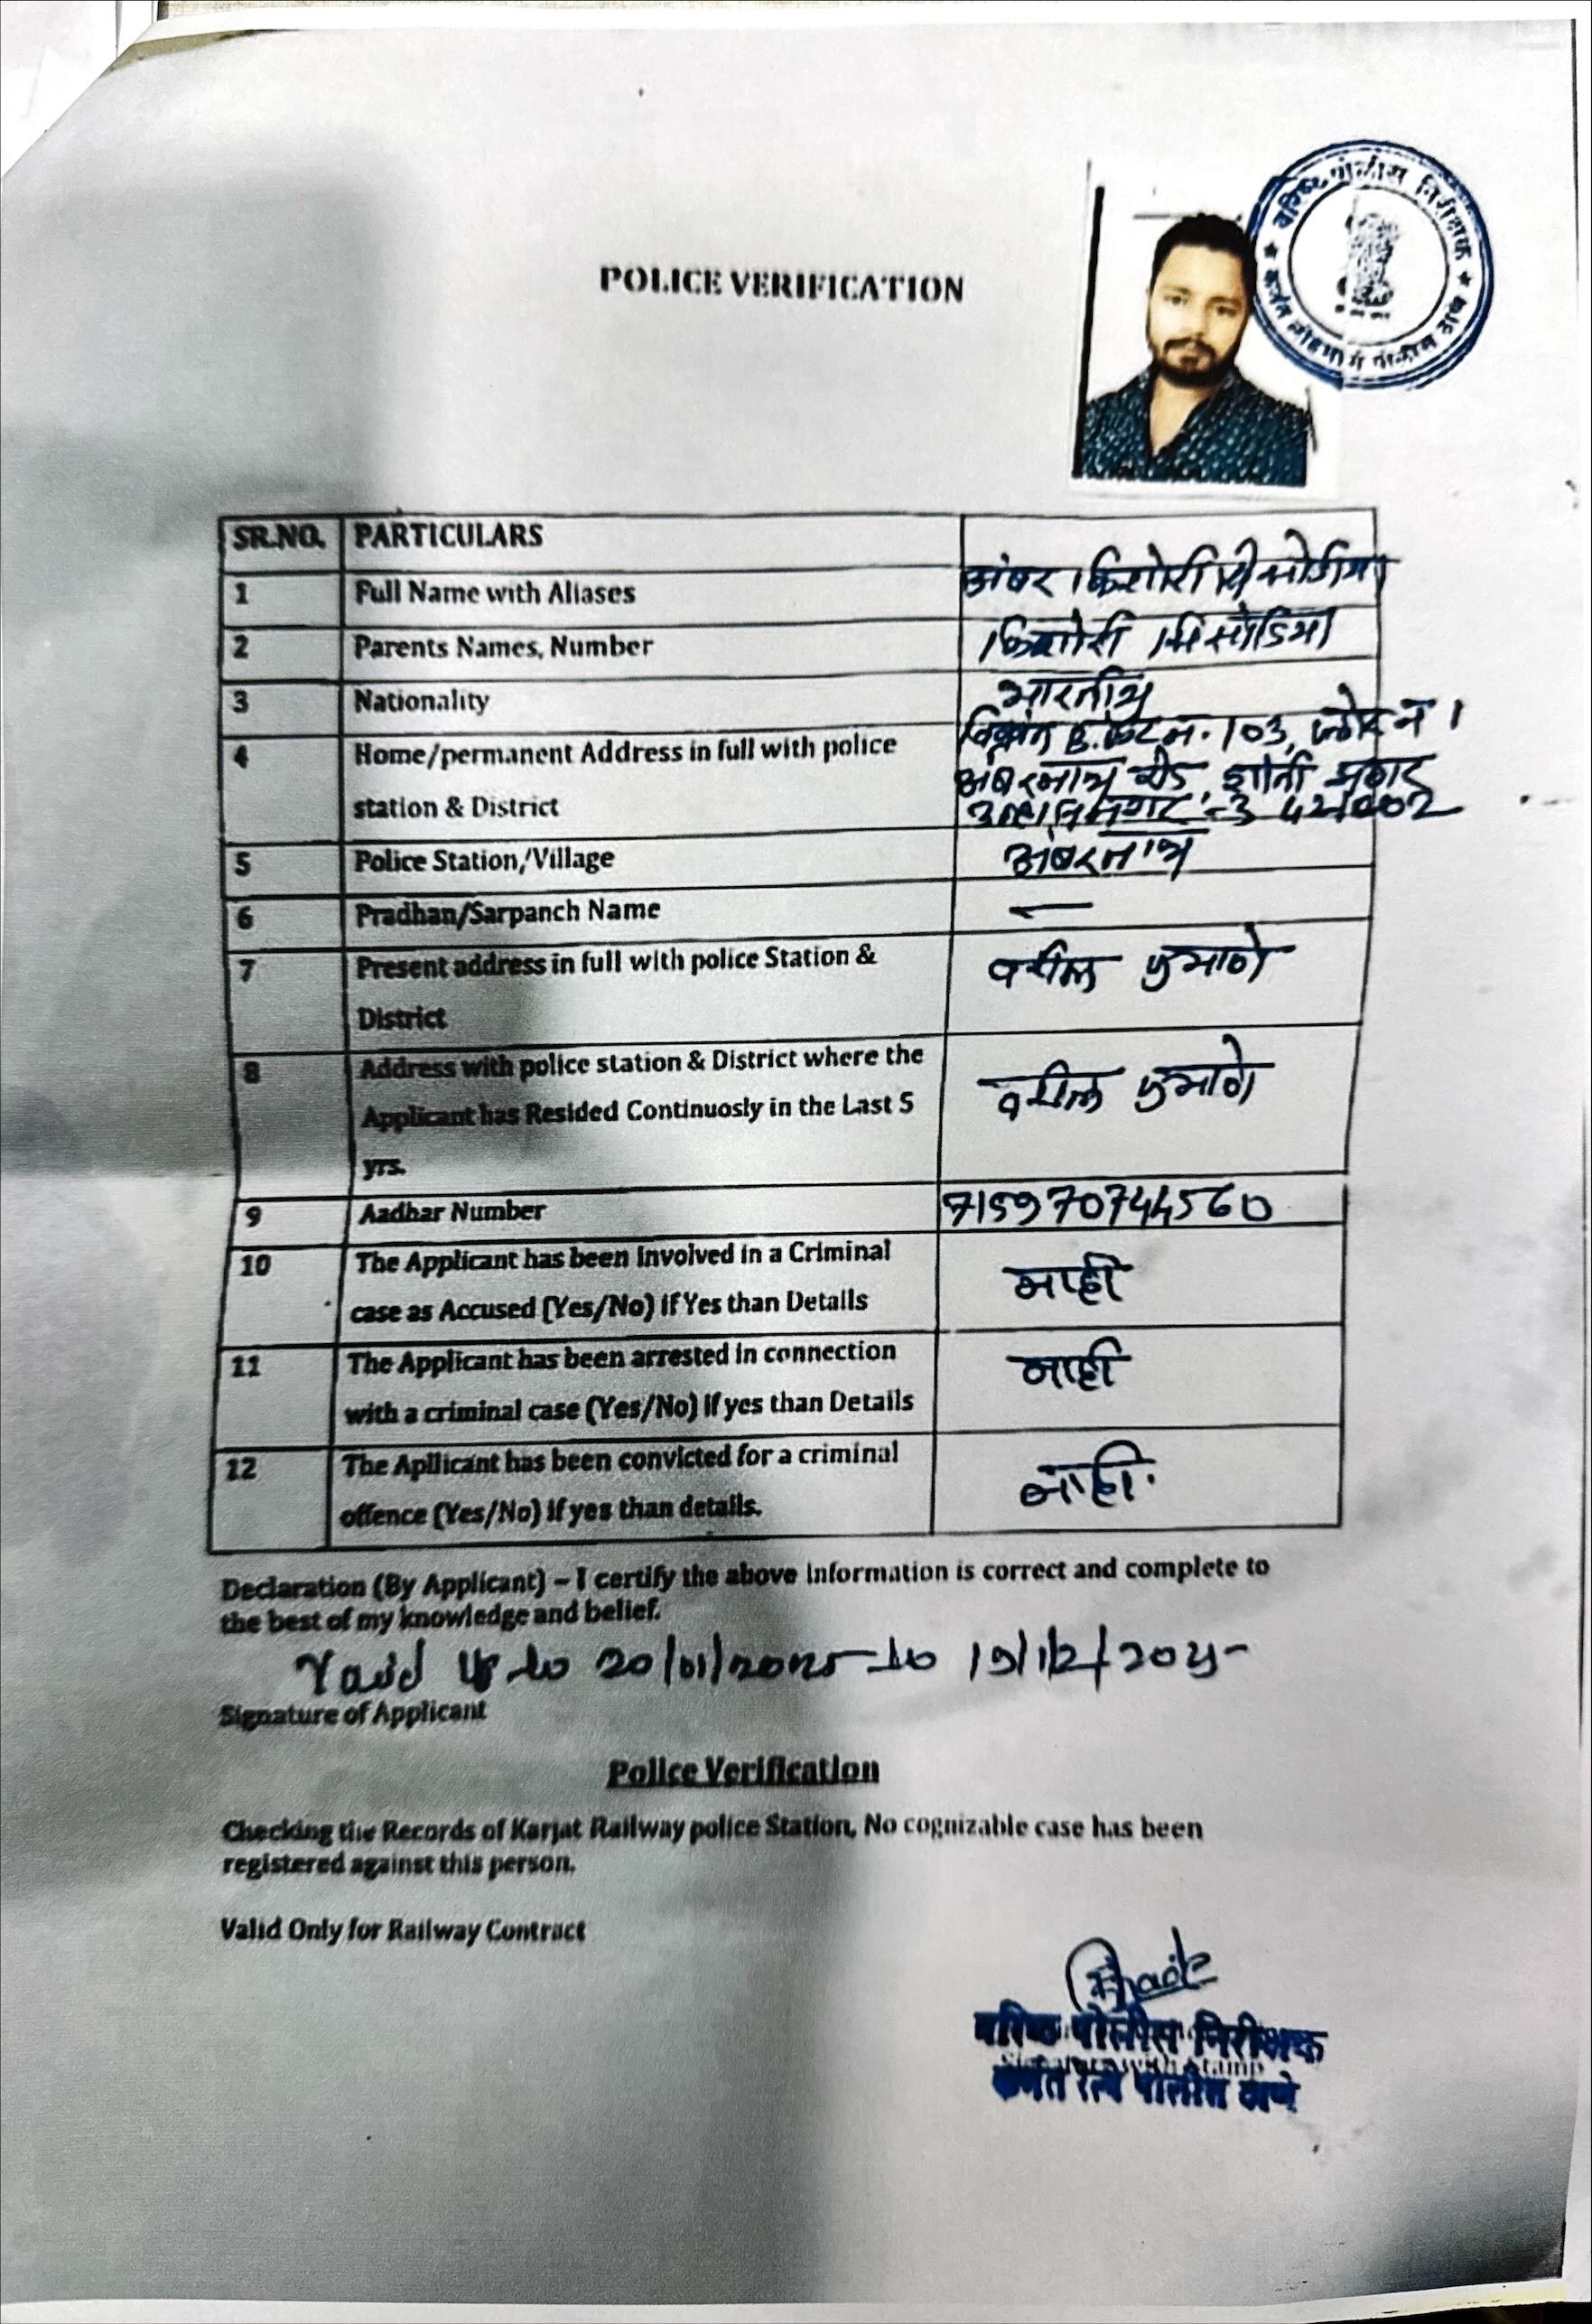 वरिष्ठ पोलीस निरीक्षक
कर्जत लोहमार्ग पोलीस ठाणे
POLICE VERIFICATION
SR.NO. PARTICULARS
1 Full Name with Aliases अंबर किशोरी सिसोदिया
2 Parents Names, Number किशोरी सिसोडिया
3 Nationality भारतीय
4 Home/permanent Address in full with police station & District
B. 103, नं 1
अंबरनाथ रोड,
उल्हासनगर -3 421002
5 Police Station/Village अंबरनाथ
6 Pradhan/Sarpanch Name —
7 Present address in full with police Station & वरील प्रमाणे
District
8 Address with police station & District where the
Applicant has Resided Continuosly in the Last 5 वरील प्रमाणे
yrs.
9 Aadhar Number 715970744560
10 The Applicant has been involved in a Criminal नाही
case as Accused (Yes/No) if Yes than Details
11 The Applicant has been arrested in connection नाही
with a criminal case (Yes/No) if yes than Details
12 The Apllicant has been convicted for a criminal नाही.
offence (Yes/No) if yes than details.
Declaration (By Applicant) – I certify the above information is correct and complete to
the best of my knowledge and belief.
Valid Up to 20/01/2025 to 19/12/2025
Signature of Applicant
Police Verification
Checking the Records of Karjat Railway police Station, No cognizable case has been
registered against this person.
Valid Only for Railway Contract
वरिष्ठ पोलीस निरीक्षक
कर्जत रेल्वे पोलीस ठाणे